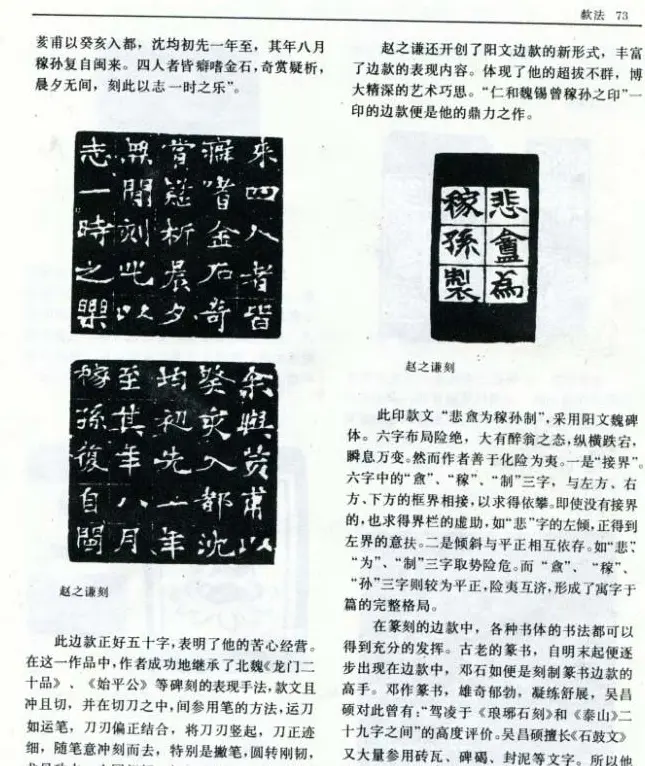 款法 73
荄甫以癸亥入都，沈均初先一年至，其年八月
稼孙复自闽来。四人者皆癖嗜金石，奇赏疑析，
晨夕无间，刻此以志一时之乐”。
來四人者皆
癖嗜金石奇
賞疑析晨夕
無間刻此以
志一時之樂
余與荄甫以
癸亥入都沈
均初先一年
至其年八月
稼孫復自閩
赵之谦刻
此边款正好五十字，表明了他的苦心经营。
在这一作品中，作者成功地继承了北魏《龙门二
十品》、《始平公》等碑刻的表现手法，款文且
冲且切，并在切刀之中，间参用笔的方法，运刀
如运笔，刀刃偏正结合，将刀刃竖起，刀正迹
细，随笔意冲刻而去，特别是撇笔，圆转刚韧，
赵之谦还开创了阳文边款的新形式，丰富
了边款的表现内容。体现了他的超拔不群，博
大精深的艺术巧思。“仁和魏锡曾稼孙之印”一
印的边款便是他的鼎力之作。
悲盦為
稼孫製
赵之谦刻
此印款文“悲盦为稼孙制”，采用阳文魏碑
体。六字布局险绝，大有醉翁之态，纵横跌宕，
瞬息万变。然而作者善于化险为夷。一是“接界”。
六字中的“盦”、“稼”、“制”三字，与左方、右
方、下方的框界相接，以求得依攀。即使没有接界
的，也求得界栏的虚助，如“悲”字的左倾，正得到
左界的意扶。二是倾斜与平正相互依存。如“悲”、
“为”、“制”三字取势险危。而“盦”、“稼”、
“孙”三字则较为平正，险夷互济，形成了寓字于
篇的完整格局。
在篆刻的边款中，各种书体的书法都可以
得到充分的发挥。古老的篆书，自明末起便逐
步出现在边款中，邓石如便是刻制篆书边款的
高手。邓作篆书，雄奇郁勃，凝练舒展，吴昌
硕对此曾有：“驾凌于《琅琊石刻》和《泰山》二
十九字之间”的高度评价。吴昌硕擅长《石鼓文》
又大量参用砖瓦、碑碣、封泥等文字。所以他